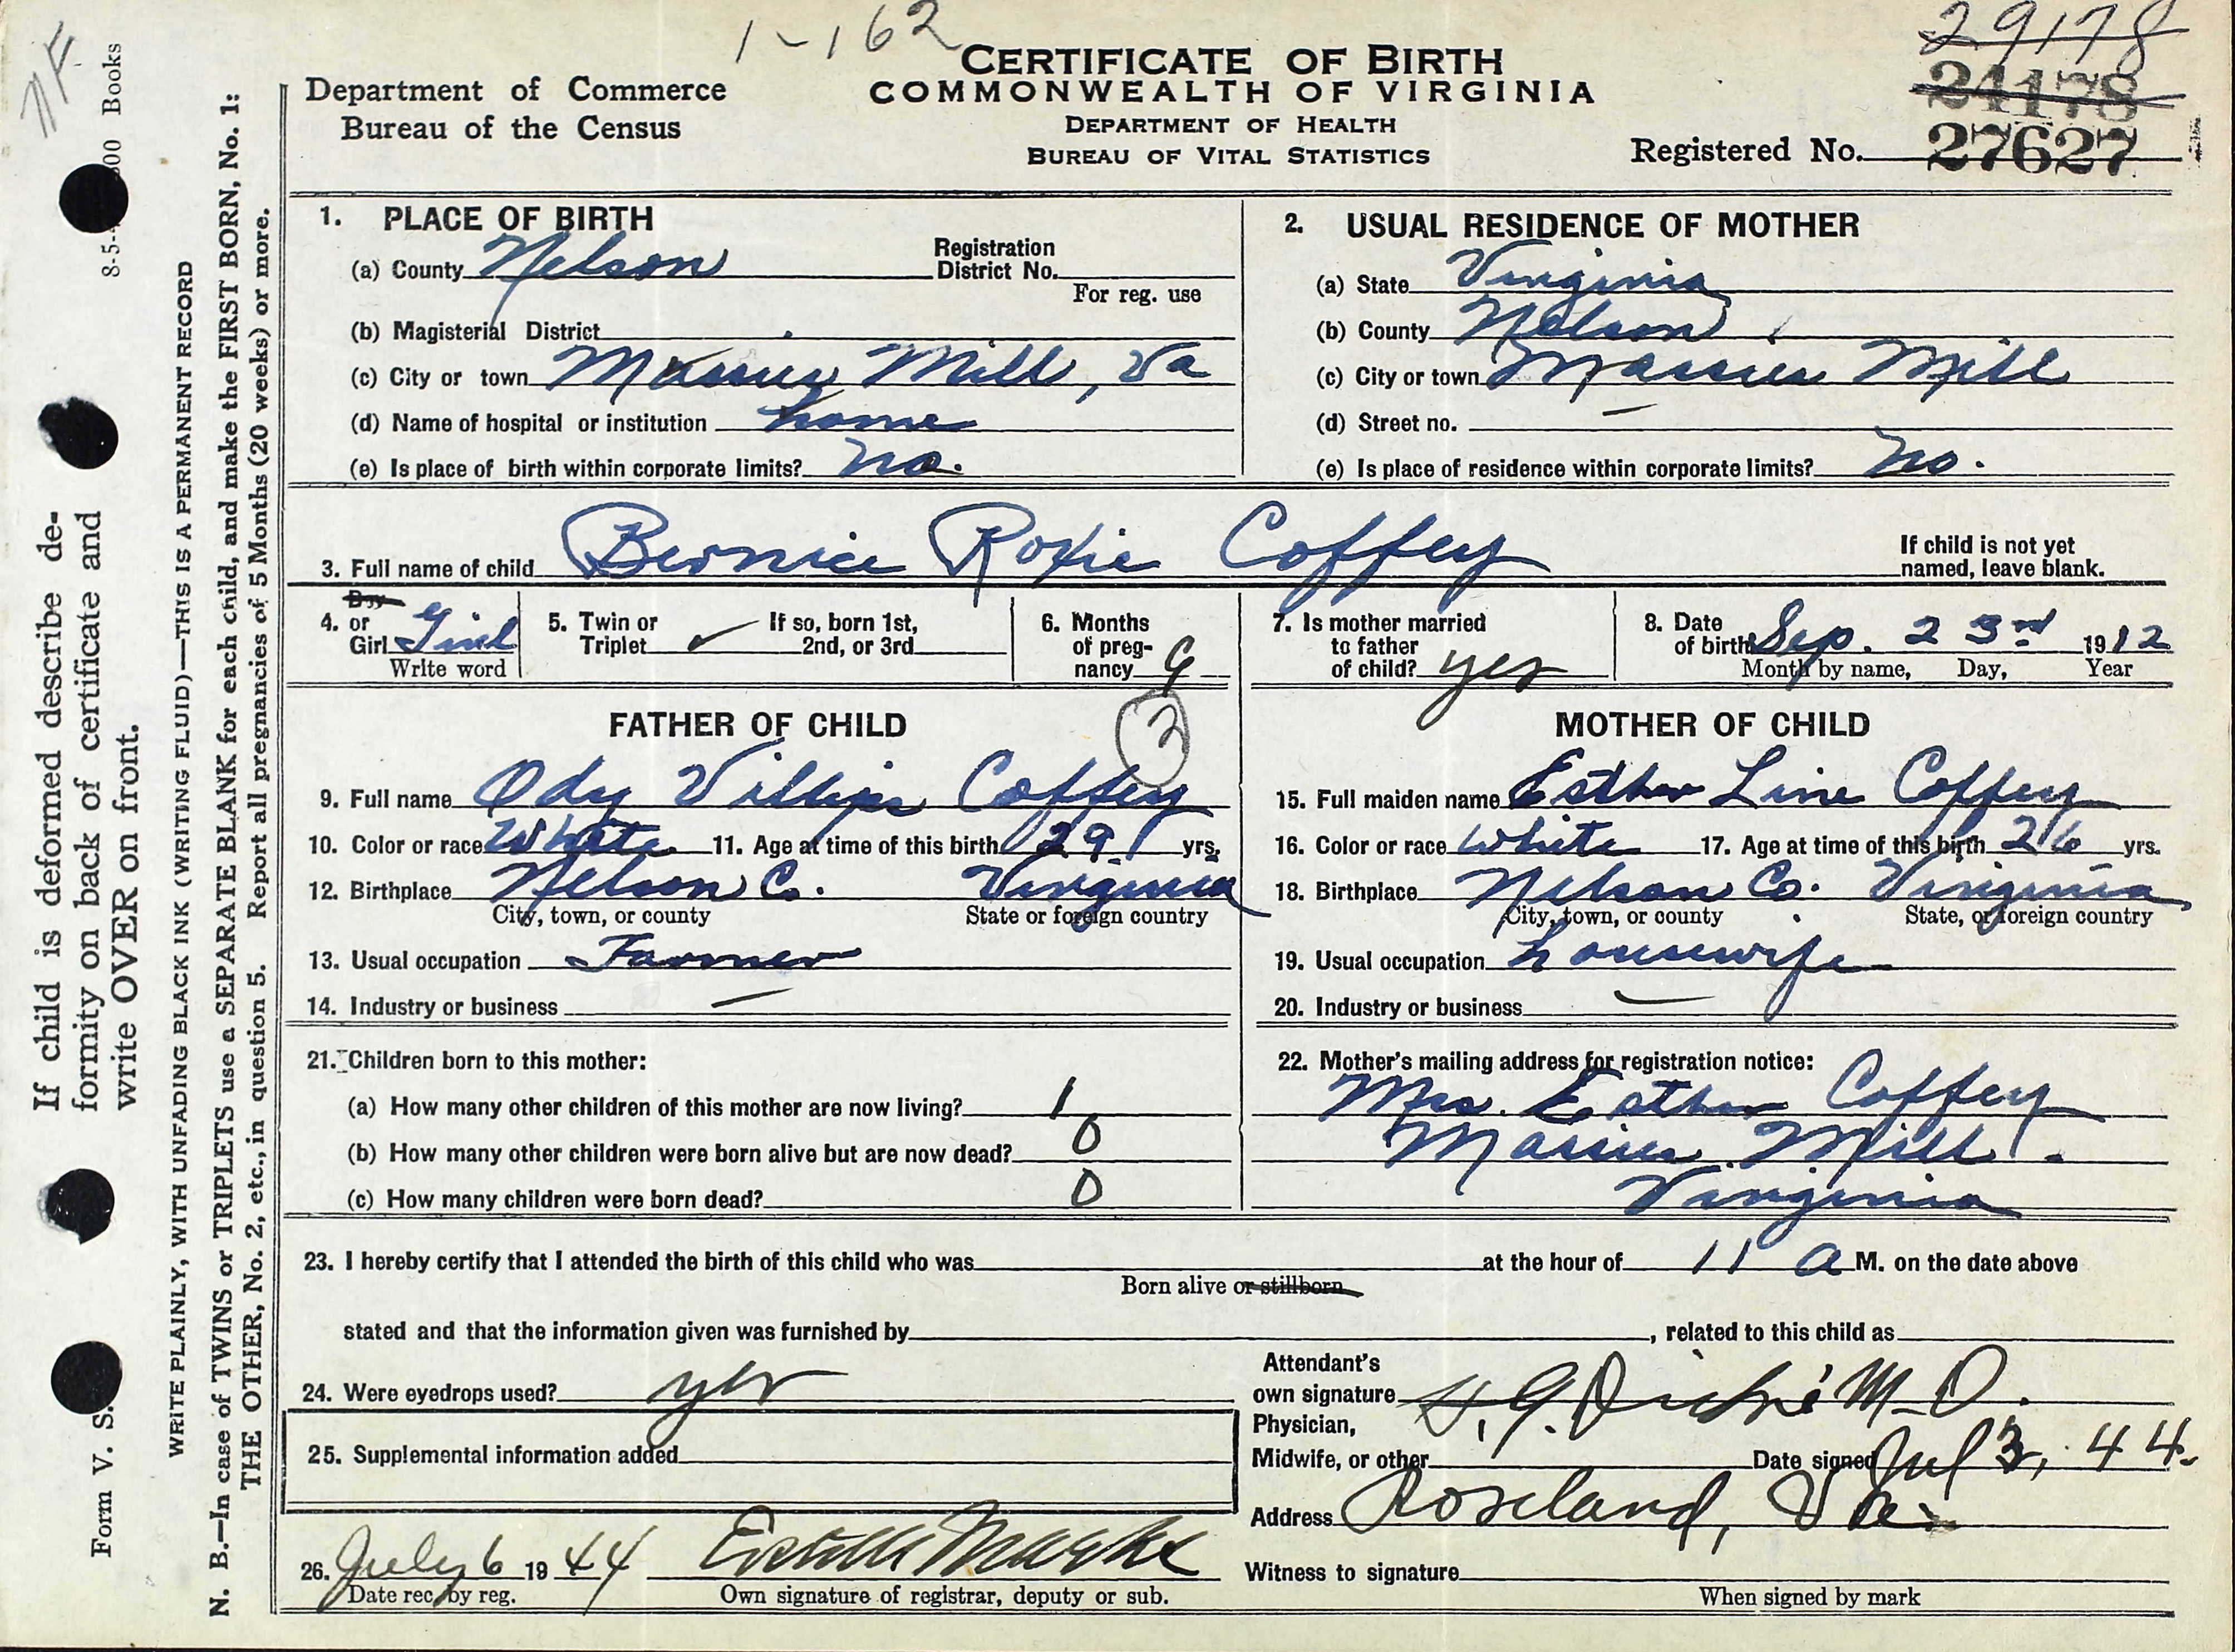 1-162
29178
24178
CERTIFICATE OF BIRTH
COMMONWEALTH OF VIRGINIA
DEPARTMENT OF HEALTH
BUREAU OF VITAL STATISTICS
Department of Commerce
Bureau of the Census
Registered No. 27627
1. PLACE OF BIRTH
(a) County Nelson Registration District No.
For reg. use
(b) Magisterial District
(c) City or town Massies Mill, Va
(d) Name of hospital or institution home
(e) Is place of birth within corporate limits? no.
2. USUAL RESIDENCE OF MOTHER
(a) State Virginia
(b) County Nelson
(c) City or town Massies Mill
(d) Street no. —
(e) Is place of residence within corporate limits? No.
3. Full name of child Bernice Roxie Coffey If child is not yet named, leave blank.
4. Boy or Girl Girl
Write word
5. Twin or Triplet ✓ If so, born 1st, 2nd, or 3rd
6. Months of pregnancy 9
7. Is mother married to father of child? yes
8. Date of birth Sep. 23rd 1912
Month by name, Day, Year
FATHER OF CHILD
2
9. Full name Ody Coffey
10. Color or race White 11. Age at time of this birth 29 yrs.
12. Birthplace Nelson C. Virginia
City, town, or county State or foreign country
13. Usual occupation Farmer
14. Industry or business —
MOTHER OF CHILD
15. Full maiden name Esther Line Coffey
16. Color or race White 17. Age at time of this birth 26 yrs.
18. Birthplace Nelson Co. Virginia
City, town, or county State, or foreign country
19. Usual occupation housewife
20. Industry or business —
21. Children born to this mother:
(a) How many other children of this mother are now living? 1
(b) How many other children were born alive but are now dead? 0
(c) How many children were born dead? 0
22. Mother's mailing address for registration notice:
Mrs. Esther Coffey
Massies Mill.
Virginia
23. I hereby certify that I attended the birth of this child who was at the hour of 11 a M. on the date above
Born alive or stillborn
stated and that the information given was furnished by , related to this child as
24. Were eyedrops used? yes
Attendant's own signature M.D.
Physician, Midwife, or other Date signed Jul 3, 44.
25. Supplemental information added
Address Roseland, Va.
26. July 6 1944
Date rec. by reg. Own signature of registrar, deputy or sub.
Witness to signature
When signed by mark
8-5- 00 Books
If child is deformed describe de-
formity on back of certificate and
write OVER on front.
Form V. S.
WRITE PLAINLY, WITH UNFADING BLACK INK (WRITING FLUID)—THIS IS A PERMANENT RECORD
N. B.—In case of TWINS or TRIPLETS use a SEPARATE BLANK for each child, and make the FIRST BORN, No. 1:
THE OTHER, No. 2, etc., in question 5. Report all pregnancies of 5 Months (20 weeks) or more.